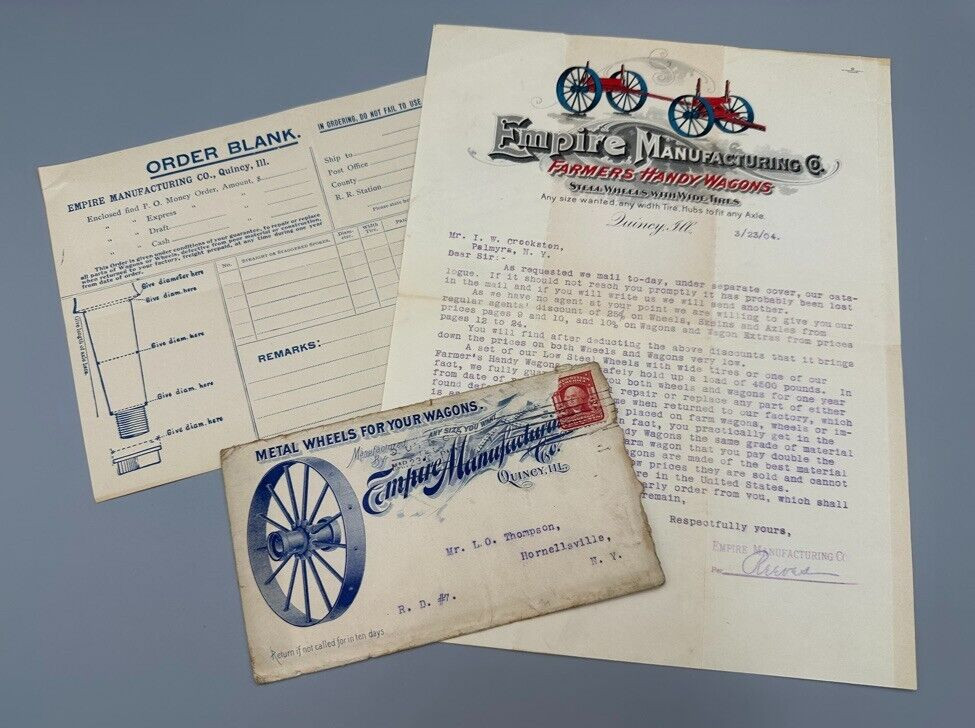 ORDER BLANK.
IN ORDERING, DO NOT FAIL TO USE
EMPIRE MANUFACTURING CO., Quincy, Ill.
Enclosed find P. O. Money Order, Amount, $
" " Express
" " Draft
" " Cash
This Order is given under conditions of your guaranty, to repair or replace
all parts of Wagons or Wheels, defective from poor material or construction,
when returned to your factory, freight prepaid, at any time during one year
from date of order.
Ship to
Post Office
County
R. R. Station
No. STRAIGHT OR STAGGERED SPOKES. Diameter. Width Tire.
REMARKS:
Give diameter here
Give diam. here
Give diam. here
Give diam. here
Give diam. here
Empire Manufacturing Co.
FARMERS HANDY WAGONS
STEEL WHEELS WITH WIDE TIRES
Any size wanted, any width Tire. Hubs to fit any Axle.
Quincy, Ill. 3/23/04.
Mr. I. W. Crookston,
Palmyra, N. Y.
Dear Sir:-
As requested we mail to-day, under separate cover, our cata-
logue. If it should not reach you promptly it has probably been lost
in the mail and if you will write us we will send another.
As we have no agent at your point we are willing to give you our
regular agents' discount of 25% on Wheels, Skeins and Axles from
prices pages 9 and 10, and 10% on Wagons and Wagon Extras from prices
pages 12 to 24.
You will find after deducting the above discounts that it brings
down the prices on both Wheels and Wagons very low.
A set of our Low Steel Wheels with wide tires or one of our
Farmer's Handy Wagons safely hold up a load of 4500 pounds. In
fact, we fully you both wheels and wagons for one year
from date of repair or replace any part of either
found when returned to our factory, which
is placed on farm wagons, wheels or im-
in fact, you practically get in the
Wagons the same grade of material
farm wagon that you pay double the
wagons are made of the best material
low prices they are sold and cannot
in the United States.
early order from you, which shall
remain,
Respectfully yours,
EMPIRE MANUFACTURING CO
Per Reeves
METAL WHEELS FOR YOUR WAGONS.
ANY SIZE YOU WANT
Manufactured By
Empire Manufacturing Co.
QUINCY, ILL.
Mr. L.O. Thompson,
Hornellsville,
N. Y.
R. D. #7.
Return if not called for in ten days